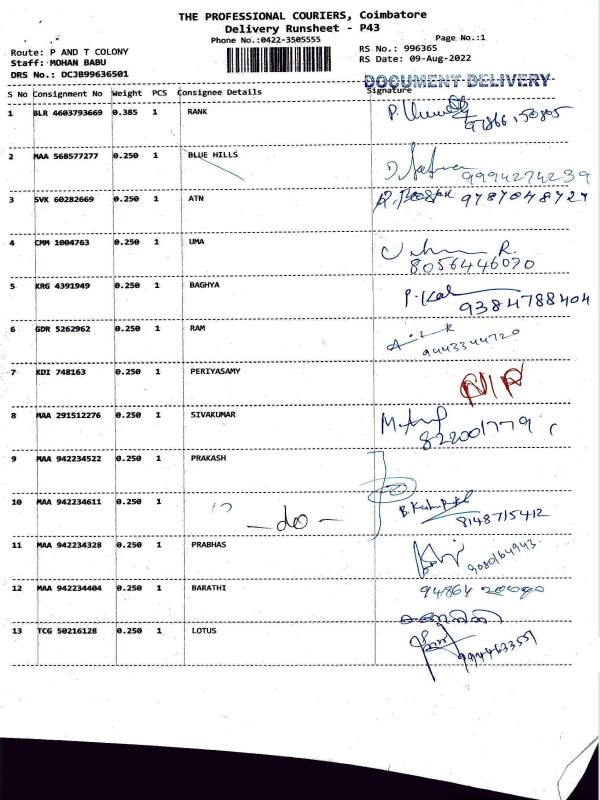 THE PROFESSIONAL COURIERS, Coimbatore
Delivery Runsheet - P43
Phone No.:0422-3505555
Page No.:1
Route: P AND T COLONY
RS No.: 996365
Staff: MOHAN BABU
RS Date: 09-Aug-2022
DRS No.: DCJB99636501
DOCUMENT DELIVERY
S No Consignment No Weight PCS Consignee Details Signature
1 BLR 4603793669 0.385 1 RANK
2 MAA 568577277 0.250 1 BLUE HILLS
9994274239
3 SVK 60282669 0.250 1 ATN
9787048727
4 CMM 1004763 0.250 1 UMA
8056446070
5 KRG 4391949 0.250 1 BAGHYA
9384788404
6 GDR 5262962 0.250 1 RAM
9443344720
7 KDI 748163 0.250 1 PERIYASAMY
8 MAA 291512276 0.250 1 SIVAKUMAR
9 MAA 942234522 0.250 1 PRAKASH
10 MAA 942234611 0.250 1 - do -
8148715412
11 MAA 942234328 0.250 1 PRABHAS
9080164943
12 MAA 942234404 0.250 1 BARATHI
13 TCG 50216128 0.250 1 LOTUS